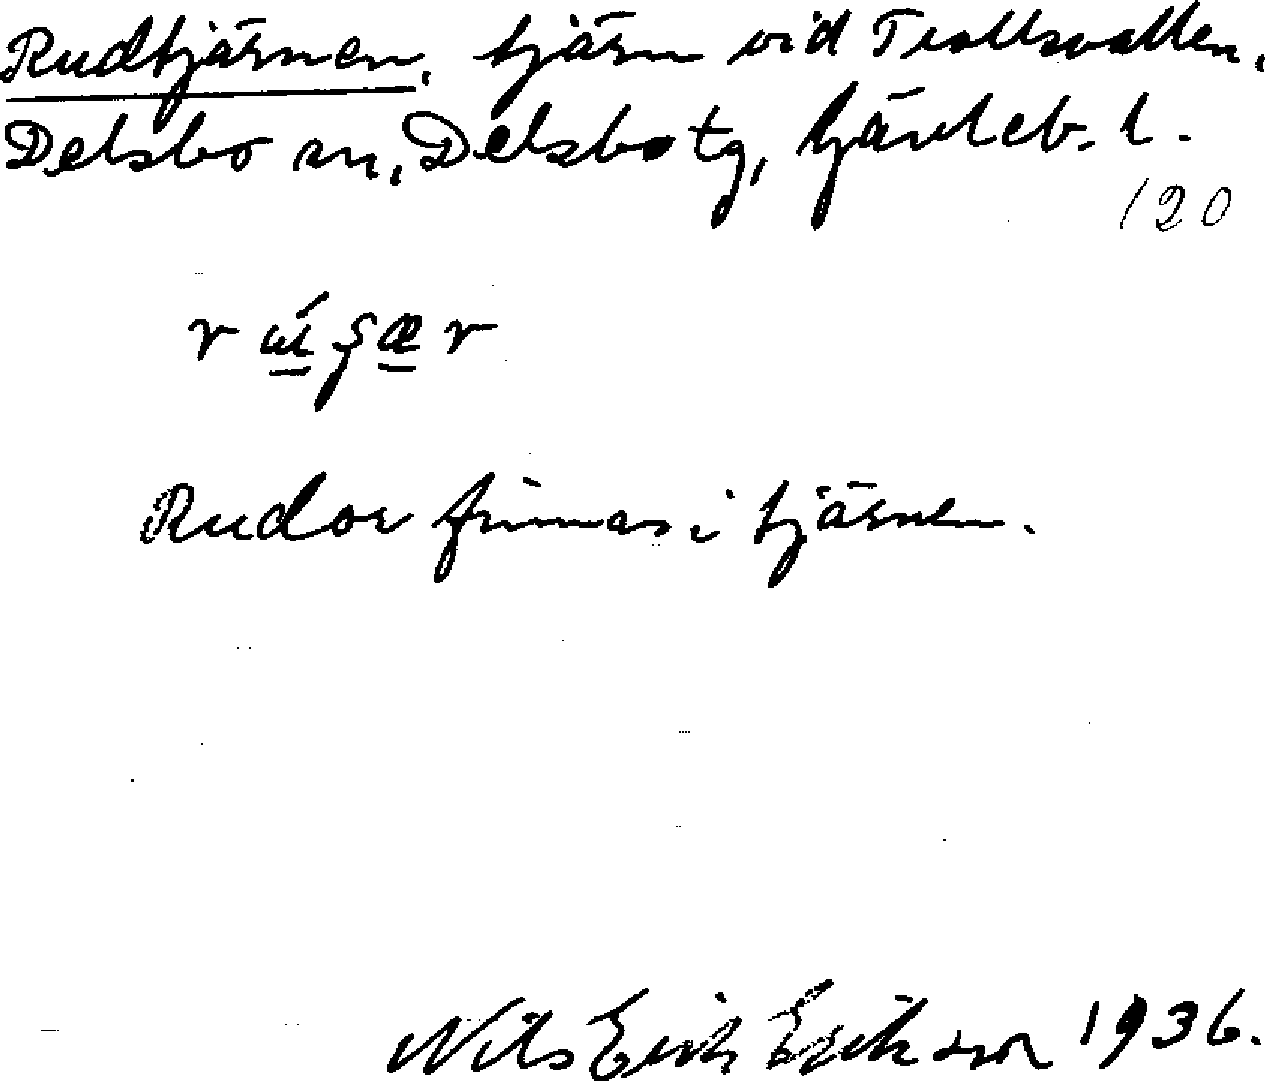 Rudtjärnen, tjärn vid Trollsvallen,
Delsbo sn, Delsbo tg, Gävleb. l.
120
Rudor finnas i tjärnen.
Nils Erik Erikson 1936.